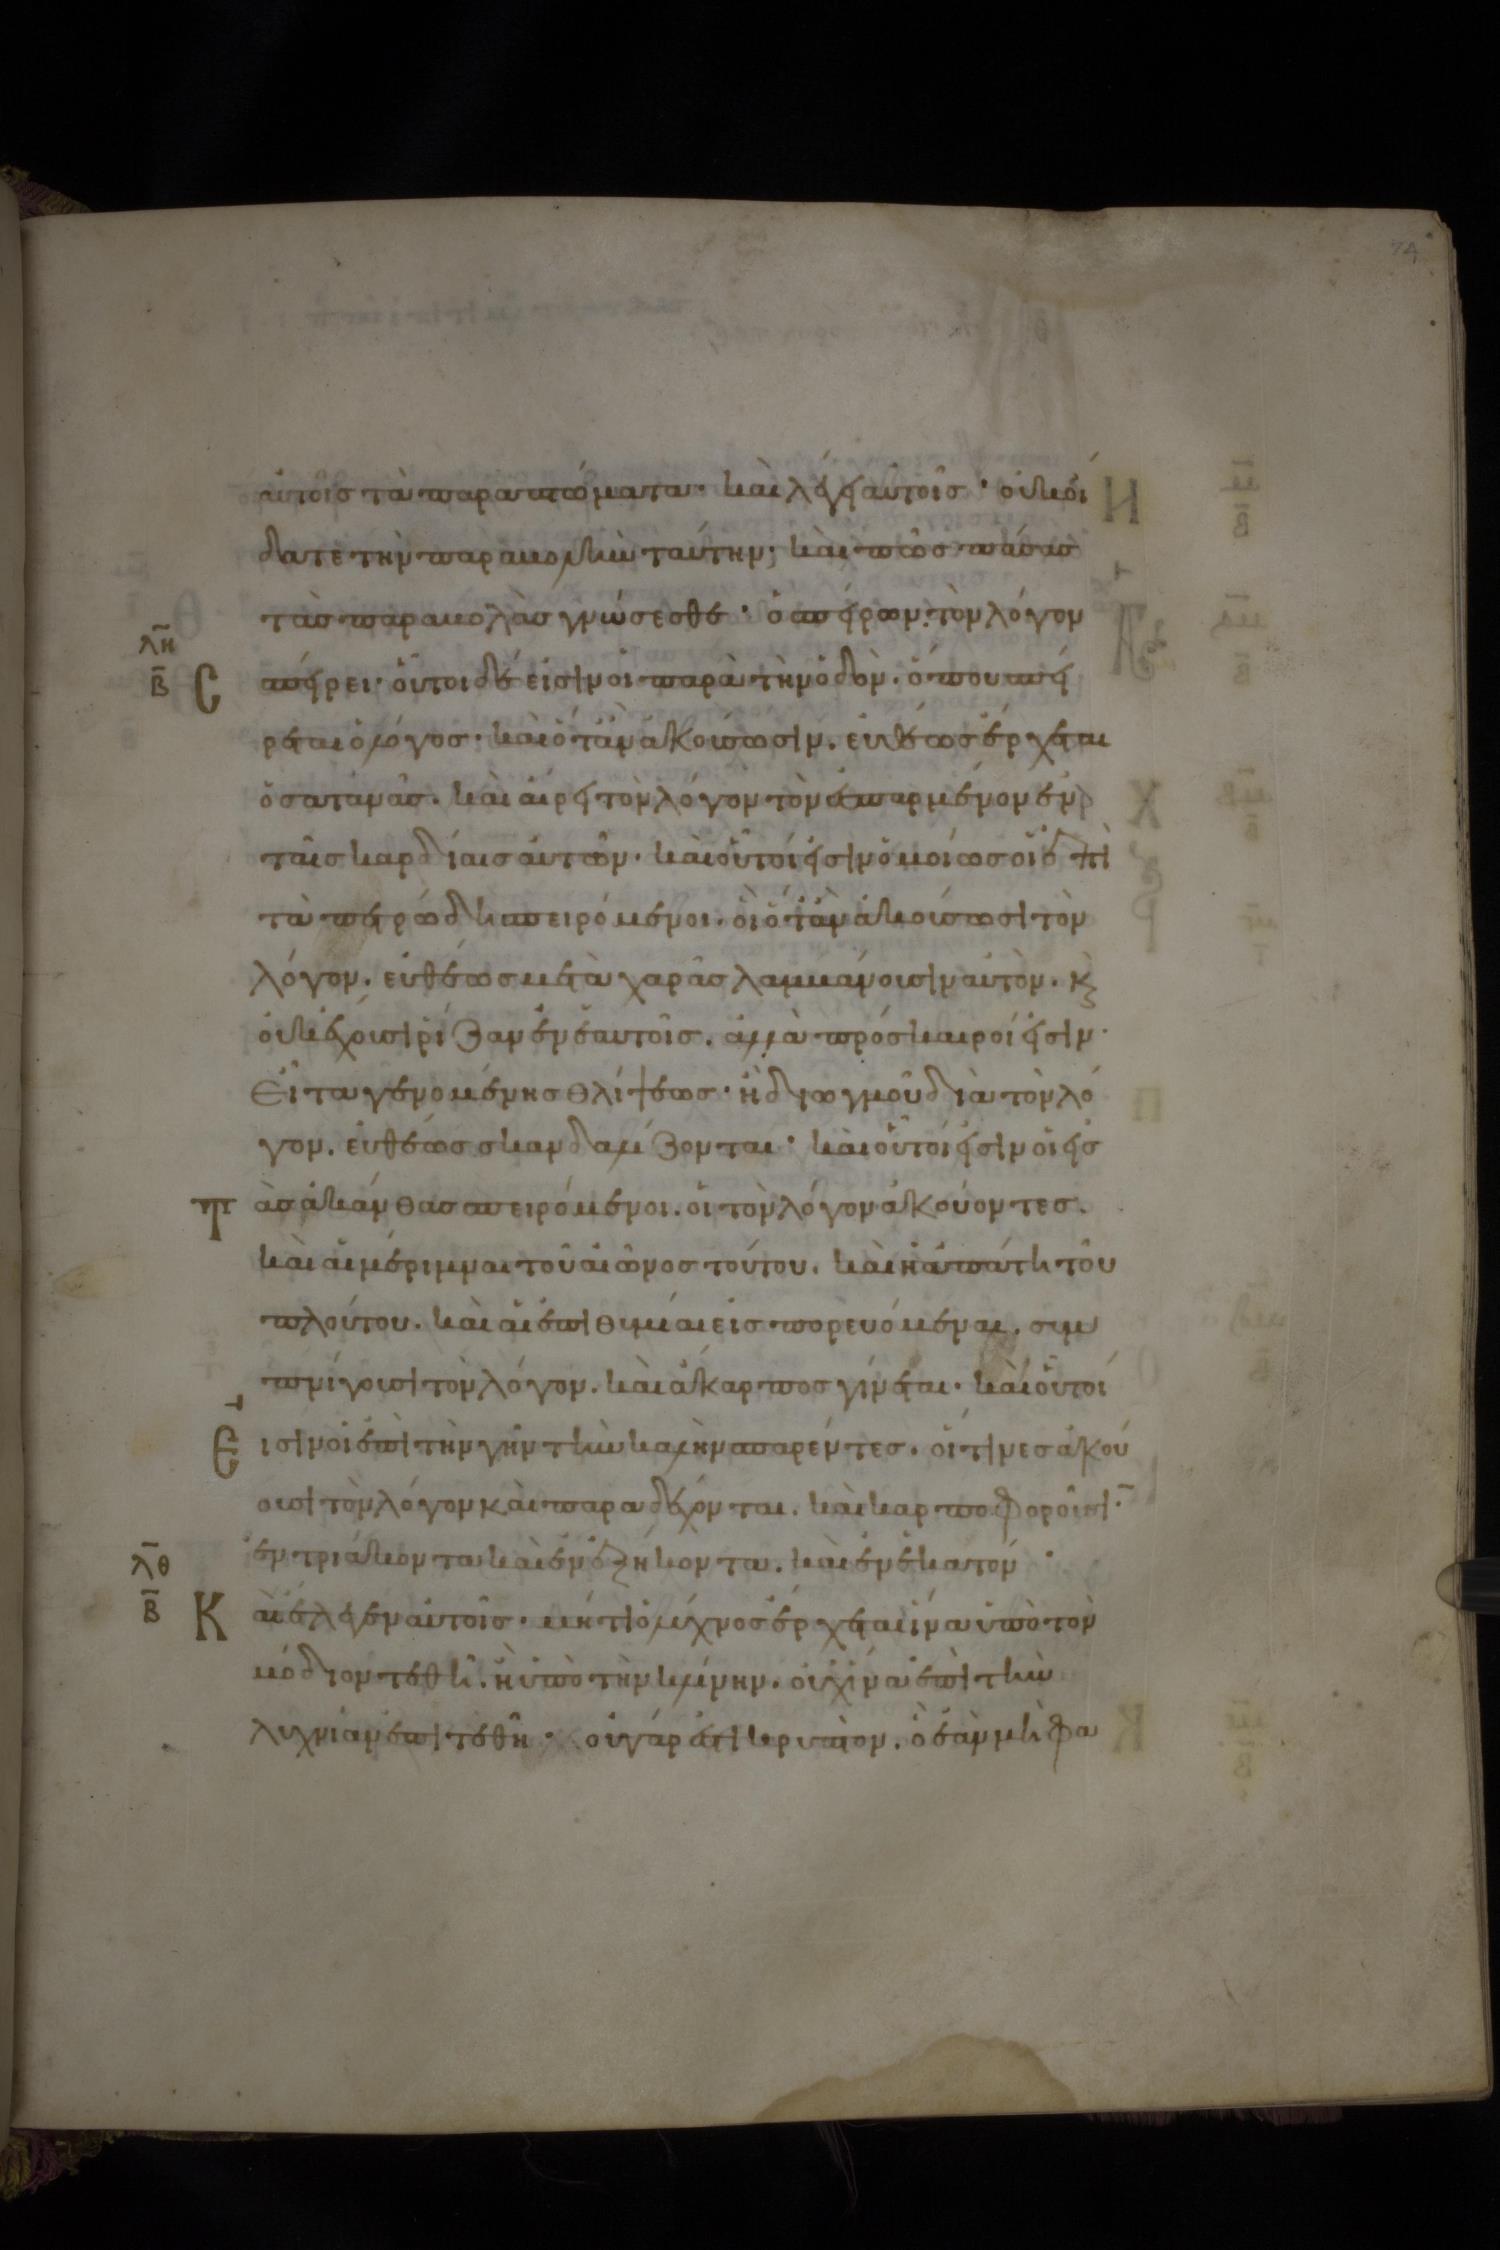 74
αὐτοῖς τὰ παραπτώματα· καὶ λέγει αὐτοῖς· οὐκ οἴ
δατε τὴν παραβολὴν ταύτην; καὶ πῶς πάσας
τὰς παραβολὰς γνώσεσθε· ὁ σπείρων τὸν λόγον
λη
β
Σ
σπείρει· οὗτοι δέ εἰσιν οἱ παρὰ τὴν ὁδὸν· ὅπου σπεί
ρεται ὁ λόγος· καὶ ὅταν ἀκούσωσιν. εὐθέως ἔρχεται
ὁ σατανᾶς. καὶ αἴρει τὸν λόγον τὸν ἐσπαρμένον ἐν
ταῖς καρδίαις αὐτῶν· καὶ οὗτοί εἰσιν ὁμοίως οἱ ἐπὶ
τὰ πετρώδη σπειρόμενοι. οἱ ὅταν ἀκούσωσι τὸν
λόγον. εὐθέως μετὰ χαρᾶς λαμβάνουσιν αὐτὸν. κ̀
οὐκ ἔχουσι ῥίζαν ἐν ἑαυτοῖς. ἀλλὰ πρόσκαιροί εἰσιν·
Εἶτα γενομένης θλίψεως· ἢ διωγμοῦ διὰ τὸν λό
γον. εὐθέως σκανδαλίζονται· καὶ οὗτοί εἰσιν οἱ εἰς
Τ
ὰς ἀκάνθας σπειρόμενοι. οἱ τὸν λόγον ἀκούοντες.
καὶ αἱ μέριμναι τοῦ αἰῶνος τούτου. καὶ ἡ ἀπάτη τοῦ
πλούτου. καὶ αἱ ἐπιθυμίαι εἰσπορευόμεναι. συμ
πνίγουσι τὸν λόγον. καὶ ἄκαρπος γίνεται· καὶ οὗτοί
Ε
ισιν οἱ ἐπὶ τὴν γῆν τὴν καλὴν σπαρέντες. οἵτινες ἀκού
ουσι τὸν λόγον καὶ παραδέχονται. καὶ καρποφοροῦσι·
ἐν τριάκοντα καὶ ἐν ἑξήκοντα. καὶ ἐν ἑκατόν·
λθ
β
Κ
αὶ ἔλεγεν αὐτοῖς· μήτι ὁ λύχνος ἔρχεται ἵνα ὑπὸ τὸν
μόδιον τεθῆ. ἢ ὑπὸ τὴν κλίνην. οὐχ ἵνα ἐπὶ τὴν
λυχνίαν ἐπιτεθῆ· οὐ γάρ ἐστι κρυπτὸν. ὃ ἐὰν μὴ φα